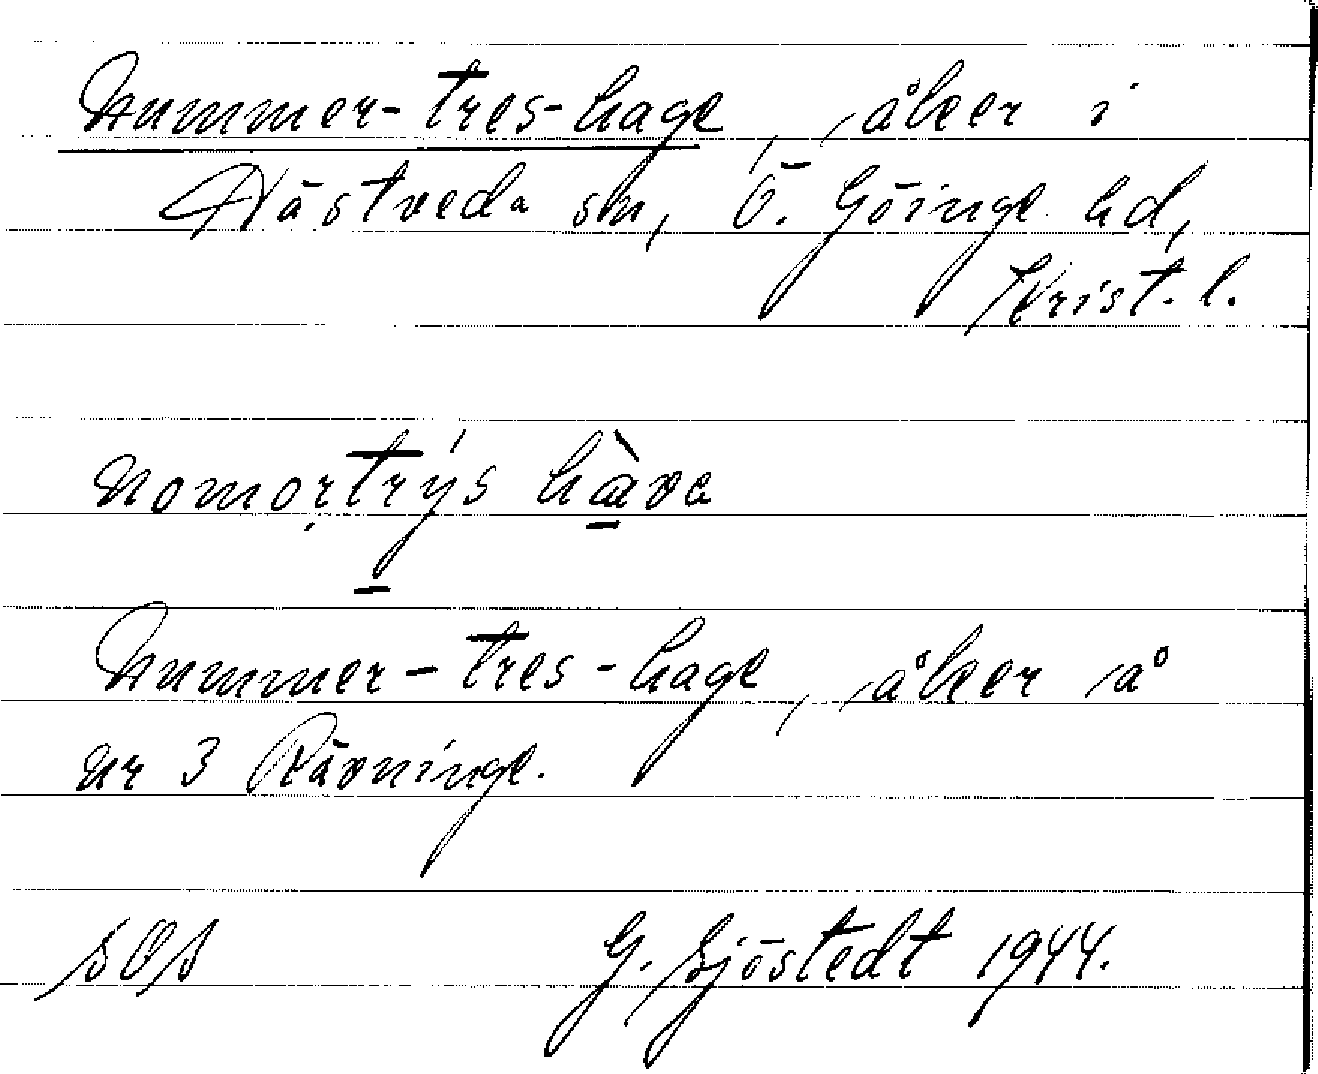 Nummer-tres-hage, åker i
Hästveda sn, Ö. Göinge hd,
Krist. l.
nomọrtrýs hàva
Nummer-tres-hage, åker å
nr 3 Rävninge.
sOs G. Sjöstedt 1944.